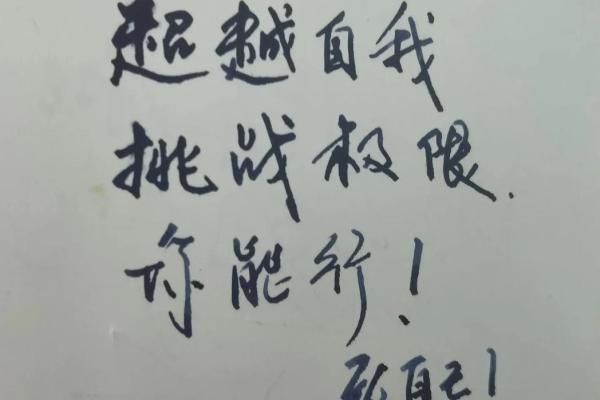 超越自我
挑战极限.
你能行！
自己！